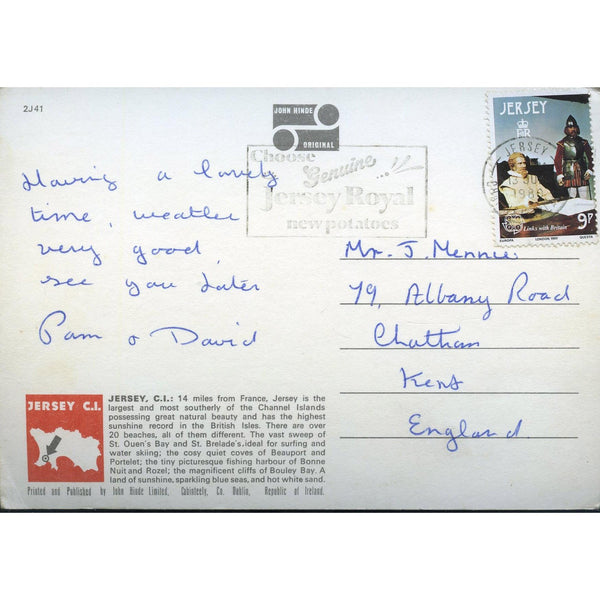 2J41
JOHN HINDE
ORIGINAL
Choose
Genuine
Jersey Royal
new potatoes
JERSEY
JERSEY
1980
9p
Links with Britain
EUROPA LONDON 1980 QUESTA
Having a lovely
time, weather
very good,
see you later
Pam & David
Mr. J. Mennie.
79, Albany Road
Chatham
Kent
England
JERSEY C.I.
JERSEY, C.I.: 14 miles from France, Jersey is the
largest and most southerly of the Channel Islands
possessing great natural beauty and has the highest
sunshine record in the British Isles. There are over
20 beaches, all of them different. The vast sweep of
St. Ouen's Bay and St. Brelade's.ideal for surfing and
water skiing; the cosy quiet coves of Beauport and
Portelet; the tiny picturesque fishing harbour of Bonne
Nuit and Rozel; the magnificent cliffs of Bouley Bay. A
land of sunshine, sparkling blue seas, and hot white sand.
Printed and Published by John Hinde Limited, Cabinteely, Co. Dublin, Republic of Ireland.